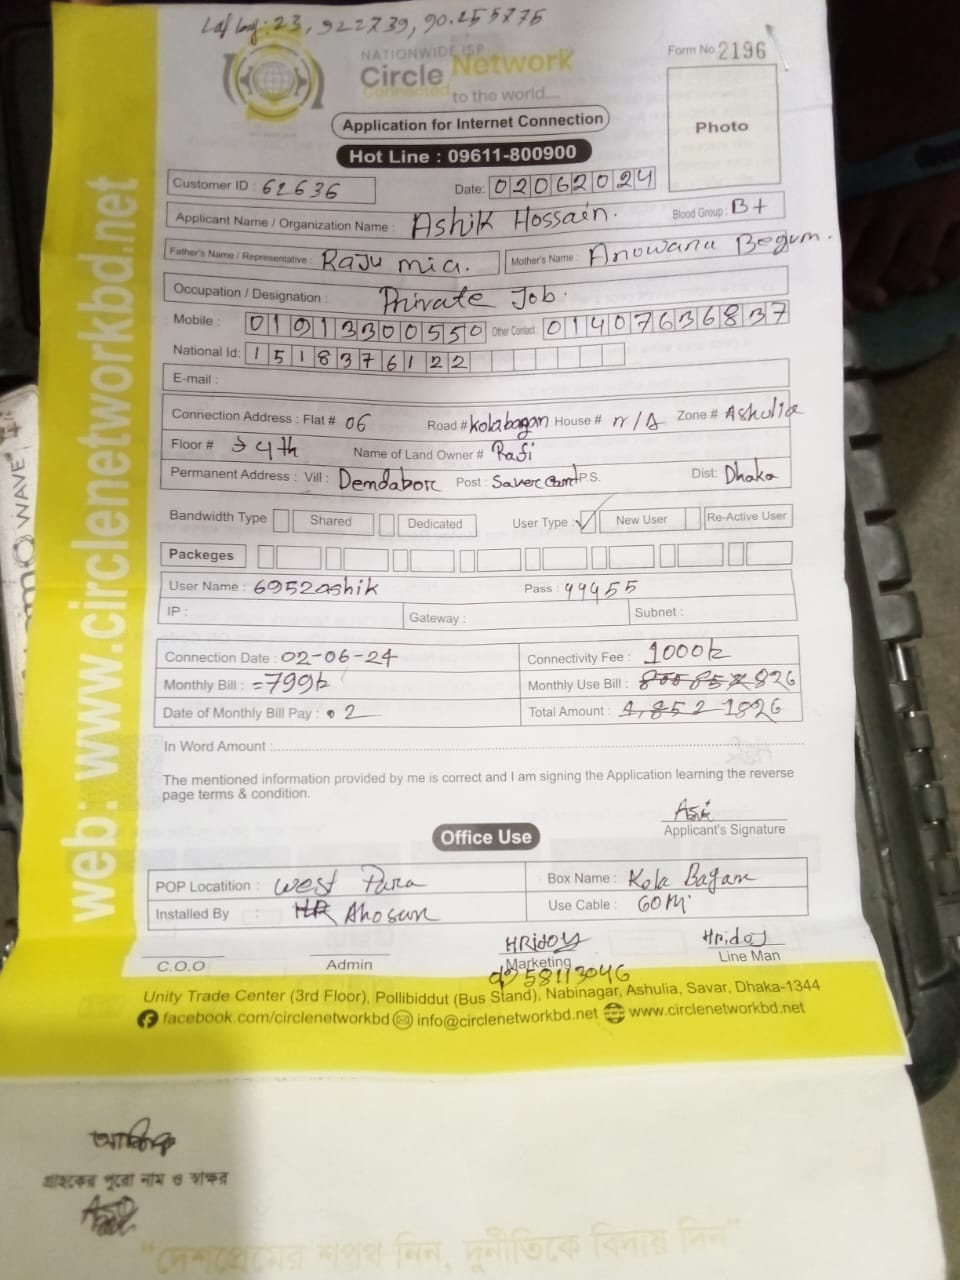 Lat long: 23, 922739, 90.255775
NATIONWIDE ISP
Circle Network
Connected to the world....
Form No 2196
Photo
Application for Internet Connection
Hot Line : 09611-800900
Customer ID : 62636 Date: 02062024
Applicant Name / Organization Name : Ashik Hossain. Blood Group : B+
Father's Name / Representative : Raju mia. Mother's Name : Anowara Begum.
Occupation / Designation : Private Job.
Mobile : 01913300550 Other Contact : 01407636837
National Id: 1518376122
E-mail :
Connection Address : Flat # 06 Road # kolabagan House # n/A Zone # Ashulia
Floor # → 4th Name of Land Owner # Rafi
Permanent Address : Vill : Dendabor Post : Saver cant P.S. Dist: Dhaka
Bandwidth Type Shared Dedicated User Type : ✓ New User Re-Active User
Packeges
User Name : 6952ashik Pass : 44455
IP : Gateway : Subnet :
Connection Date : 02-06-24 Connectivity Fee : 1000tk
Monthly Bill : =799tk Monthly Use Bill : 826
Date of Monthly Bill Pay : 2 Total Amount : 1,852 1826
In Word Amount :
The mentioned information provided by me is correct and I am signing the Application learning the reverse
page terms & condition.
Applicant's Signature
Office Use
POP Locatition : West Para Box Name : Kola Bagan
Installed By : HR Ahosun Use Cable : 60M
HRidoy Hridoy
C.O.O Admin Marketing Line Man
Unity Trade Center (3rd Floor), Pollibiddut (Bus Stand), Nabinagar, Ashulia, Savar, Dhaka-1344
facebook.com/circlenetworkbd info@circlenetworkbd.net www.circlenetworkbd.net
web: www.circlenetworkbd.net
আশিক
গ্রাহকের পুরো নাম ও স্বাক্ষর
"দেশপ্রেমের শপথ নিন, দুর্নীতিকে বিদায় দিন"